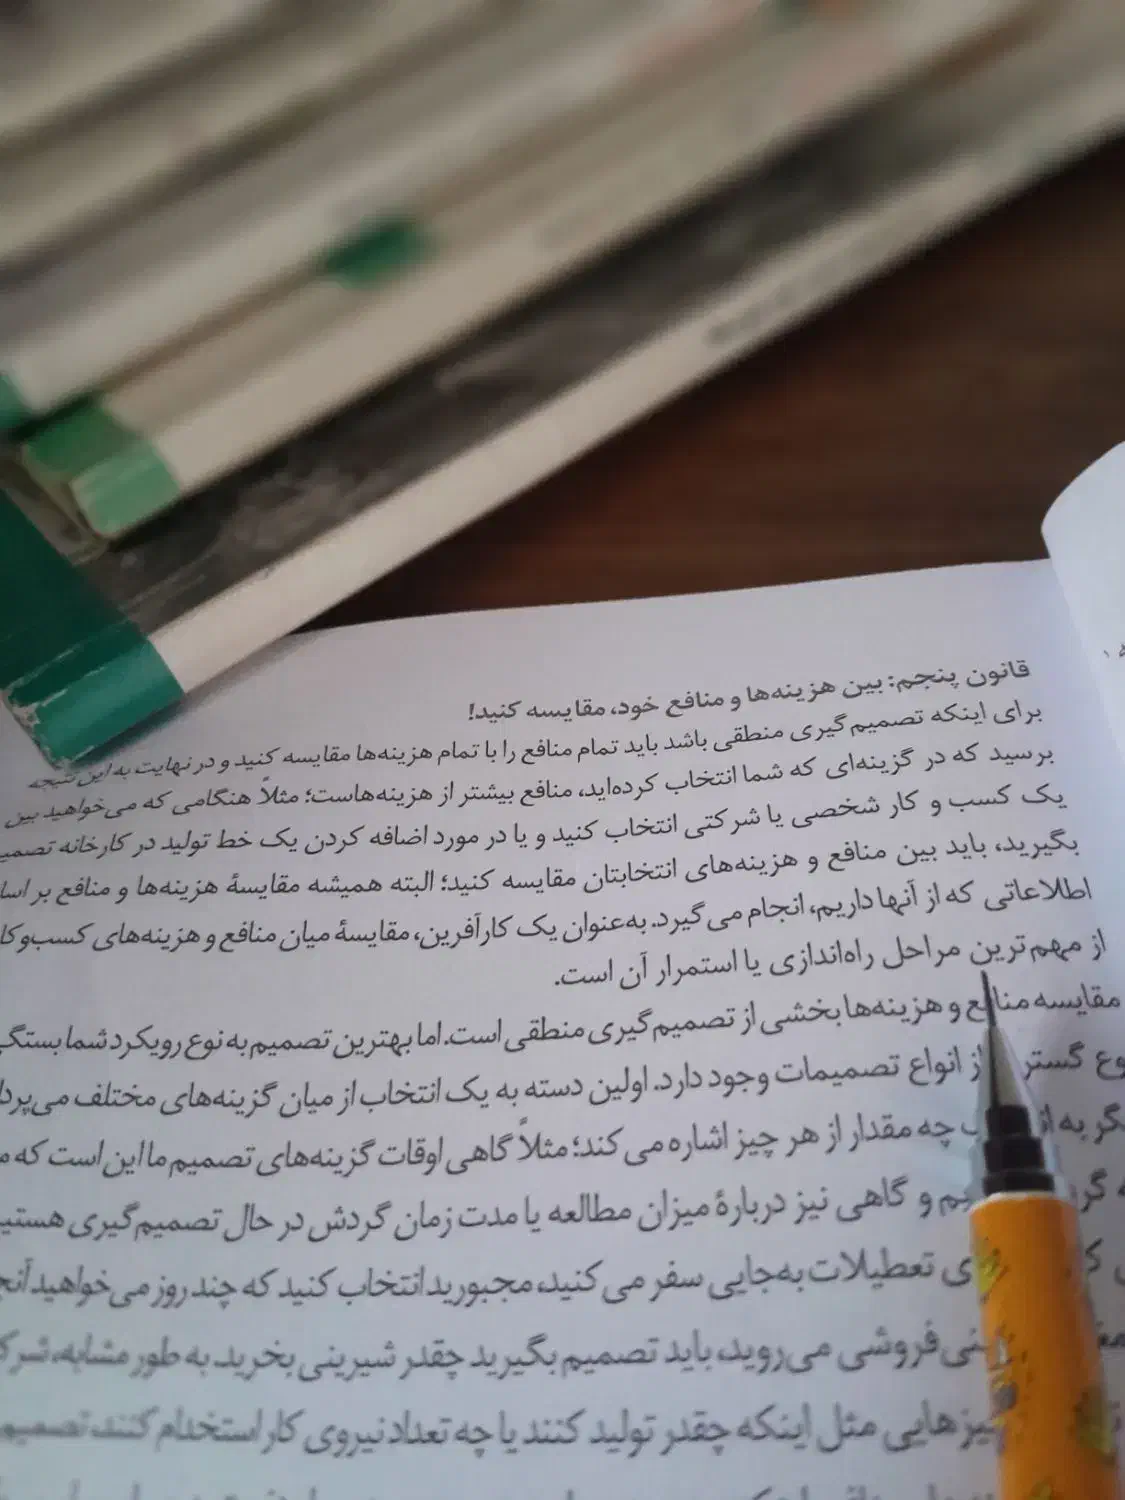 قانون پنجم: بین هزینه‌ها و منافع خود، مقایسه کنید!
برای اینکه تصمیم گیری منطقی باشد باید تمام منافع را با تمام هزینه‌ها مقایسه کنید و در نهایت به این نتیجه
برسید که در گزینه‌ای که شما انتخاب کرده‌اید، منافع بیشتر از هزینه‌هاست؛ مثلاً هنگامی که می‌خواهید بین
یک کسب و کار شخصی یا شرکتی انتخاب کنید و یا در مورد اضافه کردن یک خط تولید در کارخانه
بگیرید، باید بین منافع و هزینه‌های انتخابتان مقایسه کنید؛ البته همیشه مقایسهٔ هزینه‌ها و منافع بر
اطلاعاتی که از آنها داریم، انجام می گیرد. به‌عنوان یک کارآفرین، مقایسهٔ میان منافع و هزینه‌های
از مهم‌ترین مراحل راه‌اندازی یا استمرار آن است.
مقایسه منافع و هزینه‌ها بخشی از تصمیم گیری منطقی است. اما بهترین تصمیم به نوع رویکرد شما
از انواع تصمیمات وجود دارد. اولین دسته به یک انتخاب از میان گزینه‌های مختلف
به چه مقدار از هر چیز اشاره می کند؛ مثلاً گاهی اوقات گزینه‌های تصمیم ما این است که
و گاهی نیز دربارهٔ میزان مطالعه یا مدت زمان گردش در حال تصمیم‌گیری
تعطیلات به‌جایی سفر می کنید، مجبورید انتخاب کنید که چند روز می‌خواهید
می‌روید، باید تصمیم بگیرید چقدر شیرینی بخرید. به طور مشابه،
مثل اینکه چقدر تولید کنند یا چه تعداد نیروی کار استخدام کنند، تصمیم